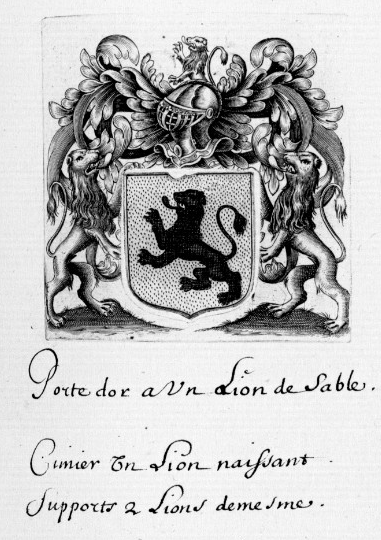 Porte dor a Vn Lion de Sable.
Cimier Vn Lion naissant
Supports 2 Lions demesme.